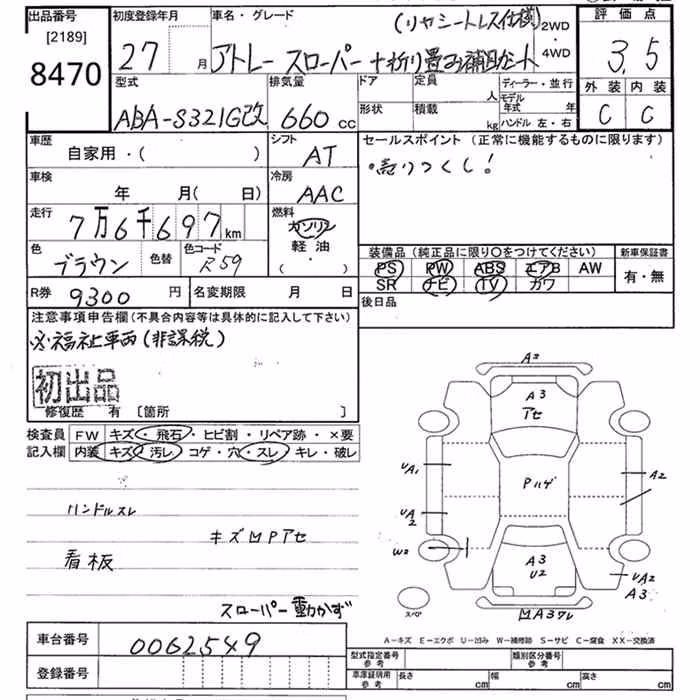 出品番号 初度登録年月 車名・グレード (リヤシートレス仕様) 2WD 評価点
[2189]
8470 27 月 アトレー スローパー +折り畳み補助シート ・4WD 3.5
型式 排気量 ドア 定員 人 ディーラー・並行 外装 内装
ABA-S321G改 660 cc 形状 積載 kg モデル年式 年 ハンドル 左・右 C C
車歴 シフト セールスポイント (正常に機能するものに限ります)
自家用・( ) AT ・売りつくし!
車検 冷房
年 月(日) AAC
走行 燃料
7万6千697km ガソリン
色 色替 色コード 軽油 装備品 (純正品に限り○をつけてください) 新車保証書
ブラウン R59 ・( ) PS PW ABS エアB AW 有・無
R券 9300円 名変期限 月 日 SR ナビ TV カワ
後日品
注意事項申告欄(不具合内容等は具体的に記入して下さい)
※福祉車両(非課税)
初出品
修復歴 有 [箇所 ]
検査員 FW キズ・飛石・ヒビ割・リペア跡・×要
記入欄 内装 キズ・汚レ・コゲ・穴・スレ・キレ・破レ
ハンドルスレ
キズ凹Pアセ
看板
スローパー動かず
A2
A3
アセ
UA1 Pハゲ A2
UA2
W2 A3
U2 UA2
A3
スペア 凹A3ワレ
A-キズ E-エクボ U-凹み W-補修跡 S-サビ C-腐食 XX-交換済
車台番号 0062549 型式指定番号 参考 類別区分番号 参考
登録番号 車庫証明用 参考 長さ cm 幅 cm 高さ cm